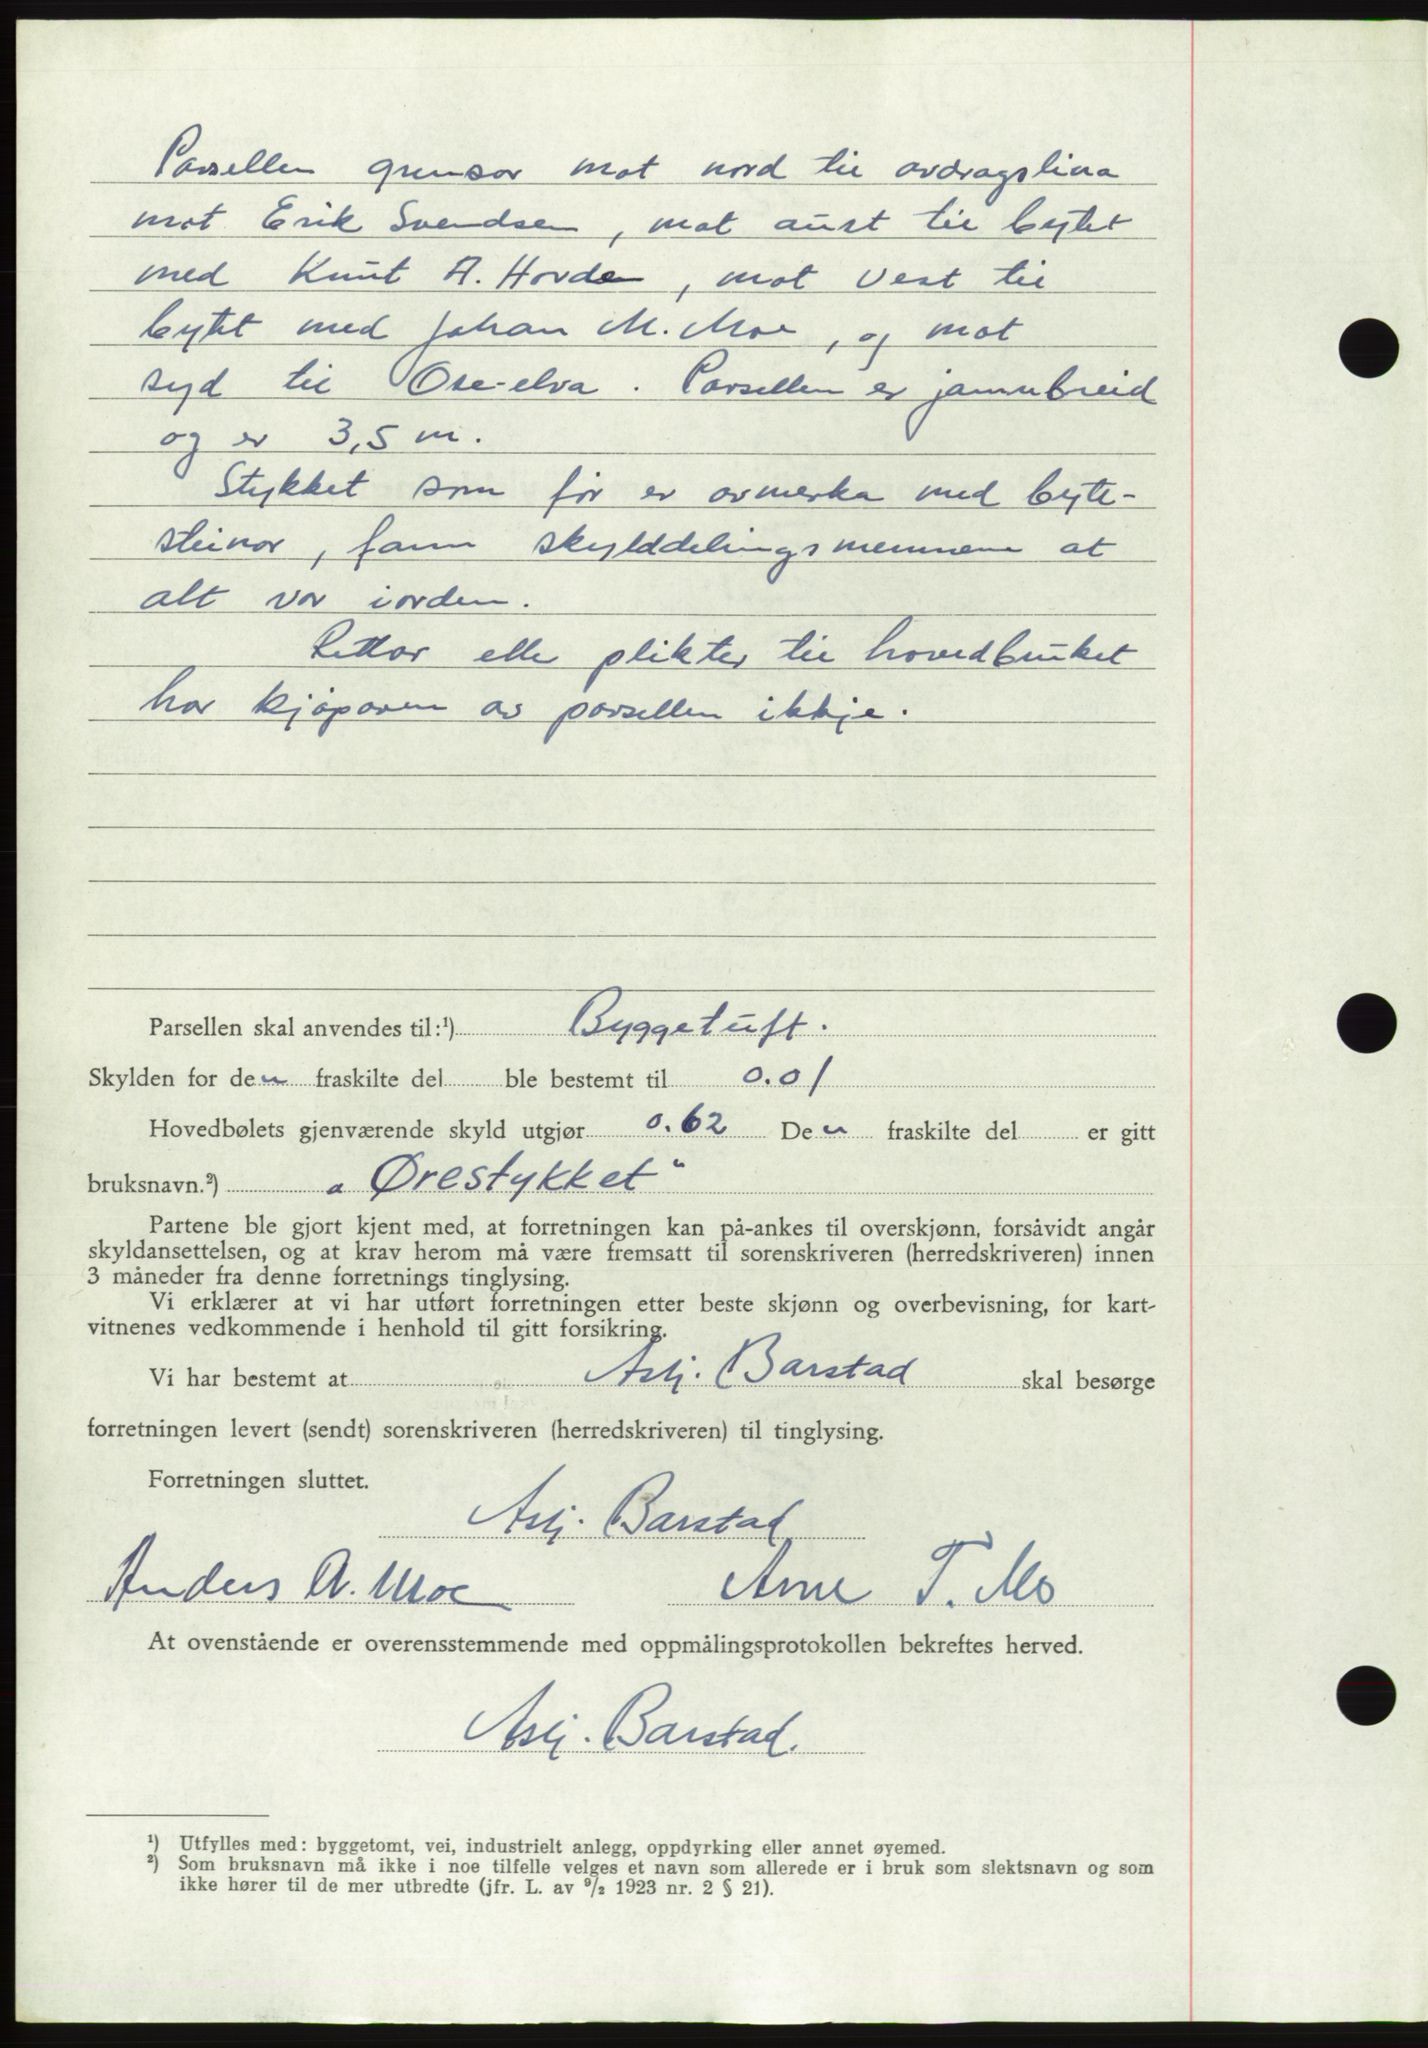 Parsellen grensar mot nord til avdragslina
mot Erik Svendsen, mot aust til bytet
med Knut A. Horde, mot vest til
bytet med Johan M. Moe, og mot
syd til Ose-elva. Parsellen er jamnbreid
og er 3,5 m.
Stykket som før er avmerka med byte-
steinar, fann skylddelingsmennene at
alt var iorden.
Rettar eller plikter til hovedbruket
har kjøparen av parsellen ikkje.
Parsellen skal anvendes til:¹) Byggetuft.
Skylden for den fraskilte del ble bestemt til 0.01
Hovedbølets gjenværende skyld utgjør 0.62 Den fraskilte del er gitt
bruksnavn.²) „Ørestykket“
Partene ble gjort kjent med, at forretningen kan på-ankes til overskjønn, forsåvidt angår
skyldansettelsen, og at krav herom må være fremsatt til sorenskriveren (herredskriveren) innen
3 måneder fra denne forretnings tinglysing.
Vi erklærer at vi har utført forretningen etter beste skjønn og overbevisning, for kart-
vitnenes vedkommende i henhold til gitt forsikring.
Vi har bestemt at Aslj. Barstad skal besørge
forretningen levert (sendt) sorenskriveren (herredskriveren) til tinglysing.
Forretningen sluttet.
Aslj. Barstad
Anders A. Moe Arne T. Mo
At ovenstående er overensstemmende med oppmålingsprotokollen bekreftes herved.
Aslj. Barstad.
¹) Utfylles med: byggetomt, vei, industrielt anlegg, oppdyrking eller annet øyemed.
²) Som bruksnavn må ikke i noe tilfelle velges et navn som allerede er i bruk som slektsnavn og som
ikke hører til de mer utbredte (jfr. L. av ⁹/₂ 1923 nr. 2 § 21).